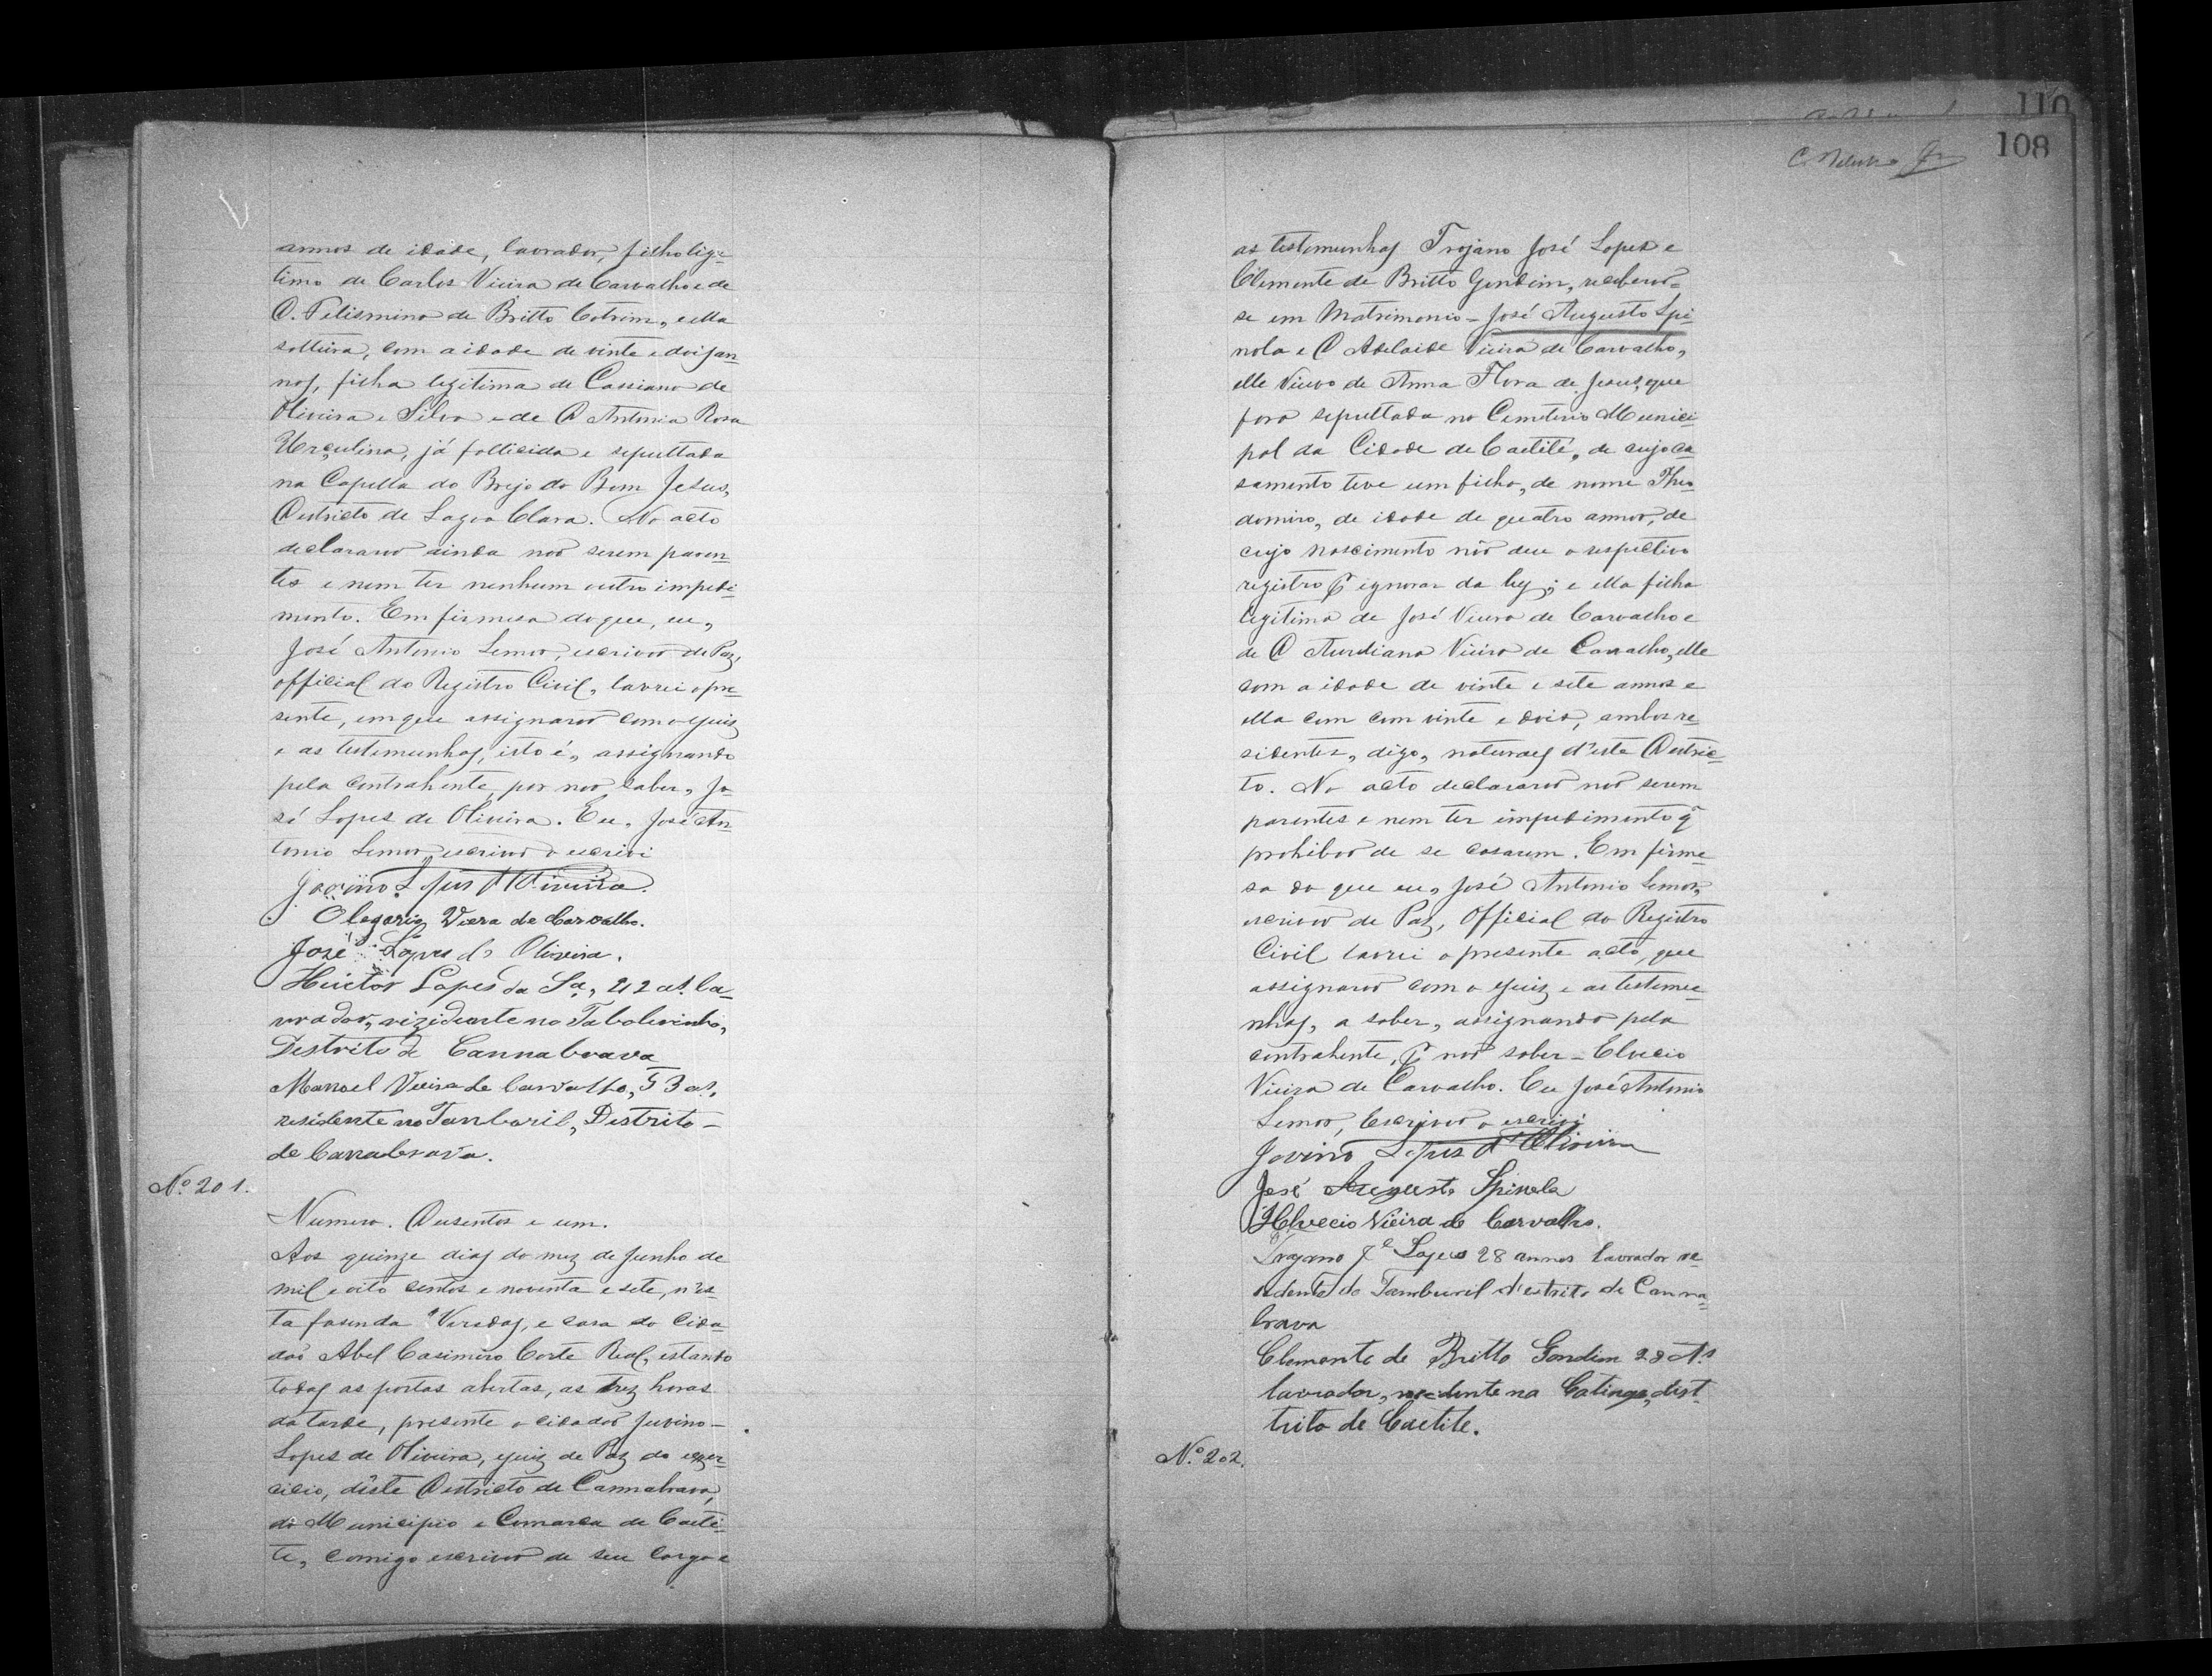 annos de idade, lavrador, filho legi-
timo de Carlos Vieira de Carvalho e de
D. Felismina de Britto Cotrim, e ella
solteira, com a idade de vinte e dois an-
nos, filha legitima de Cassiano de
Oliveira e Silva e de D Antonia Rosa
Urçulina, já fallicida e sepultada
na Capella do Brejo do Bom Jesus,
Districto de Lagoa Clara. No acto
declararão ainda não serem paren-
tes e nem ter nenhum outro impedi-
mento. Em firmesa do que, eu,
José Antonio Lemos, escrivão de Paz,
official do Registro Civil, lavrei o pre-
sente, em que assignarão com o Juiz
e as testemunhas, isto é, assignando
pela contrahente, por não saber, Jo-
sé Lopes de Oliveira. Eu, José An-
tonio Lemos, escrivão o escrivi
Jovino Lopes d'Oliveira.
Olegario Viera de Carvalho.
José Lopes de Oliveira.
Heictor Lopes da Sa, 42 as. la-
vrador, rizidente no Taboleirinho,
Destrito de Cannabrava
Manoel Vieira de Carvalho, 53 as.,
residente no Tamboril, Destrito
de Canabrava.
No. 201.
Numero. Dusentos e um.
Aos quinze dias do mez de Junho de
mil e oito centos e noventa e sete, n'es-
ta fasenda Veredas, e casa do Cida-
dão Abel Casimiro Corte Real, estando
todas as portas abertas, as trez horas
da tarde, presente o cidadão Juvino
Lopes de Oliveira, Juiz de Paz do exer-
cicio, díste Districto de Cannabrava,
do Municipio e Comarca de Caeti-
te, comigo escrivão de seu cargo e
110
108
as testemunhas Trojano José Lopes e
Clemente de Britto Gondim, receberão-
se em Matrimonio - José Augusto Spi-
nola e D Adelaide Vieira de Carvalho,
elle Viuvo de Anna Flora de Jesus, que
fora sepultada no Cemiterio Munici-
pal da Cidade de Caetité, de cujo ca-
samento teve um filho, de nome Theo
domiro, de idade de quatro annos, de
cujo nascimento não deu o respectivo
registro p ignorar da ley; e ella filha
legitima de José Vieira de Carvalho e
de D Aureliana Vieira de Carvalho, elle
com a idade de vinte e sete annos e
ella com com vinte e dois, ambos re-
sidentes, digo, naturaes d'este Distric-
to. No acto declararão não serem
parentes e nem ter impedimento q̃
prohibão de se casarem. Em firme-
sa do que eu, José Antonio Lemos,
escrivão de Paz, Official do Registro
Civil lavrei o presente acto, que
assignarão com o Juiz e as testemu-
nhas, a saber, assignando pela
contrahente, p não saber - Elvecio
Vieira de Carvalho. Eu José Antonio
Lemos, Escrivão o escrivi
Jovino Lopes d'Oliveira
José Augusto Spinola
Helvecio Vieira de Carvalho.
Trajano Je Lopes 28 annos lavrador re
sidente do Tamburil d'estrito de Canna-
brava
Clemente de Britto Gondim 28 As
lavrador, recidente na Catinga, dist-
trito de Caetite.
No. 202.